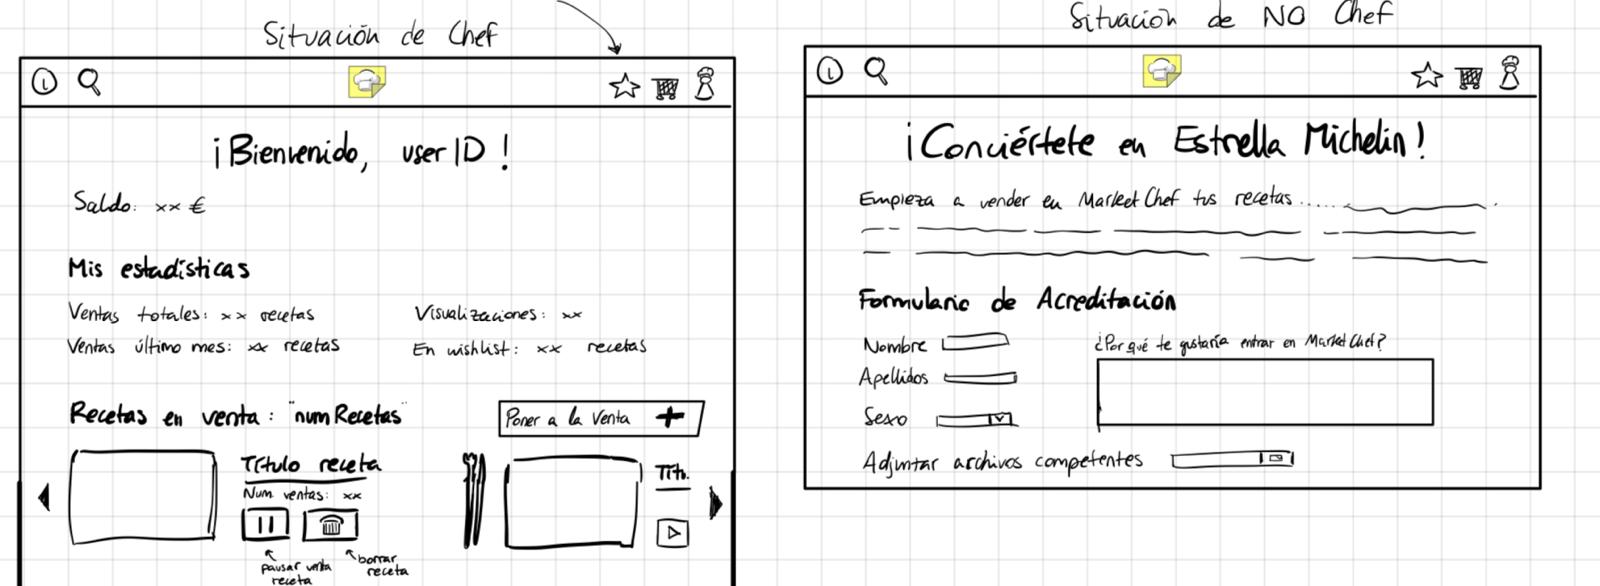 Situación de Chef
¡Bienvenido, userID!
Saldo: xx €
Mis estadísticas
Ventas totales: xx recetas
Visualizaciones: xx
Ventas último mes: xx recetas
En wishlist: xx recetas
Recetas en venta: "numRecetas"
Poner a la Venta +
Título receta
Num ventas: xx
pausar venta
receta
borrar
receta
Tít.
Situación de NO Chef
¡Conviértete en Estrella Michelin!
Empieza a vender en MarketChef tus recetas.....
Formulario de Acreditación
Nombre
¿Por qué te gustaría entrar en MarketChef?
Apellidos
Sexo
Adjuntar archivos competentes